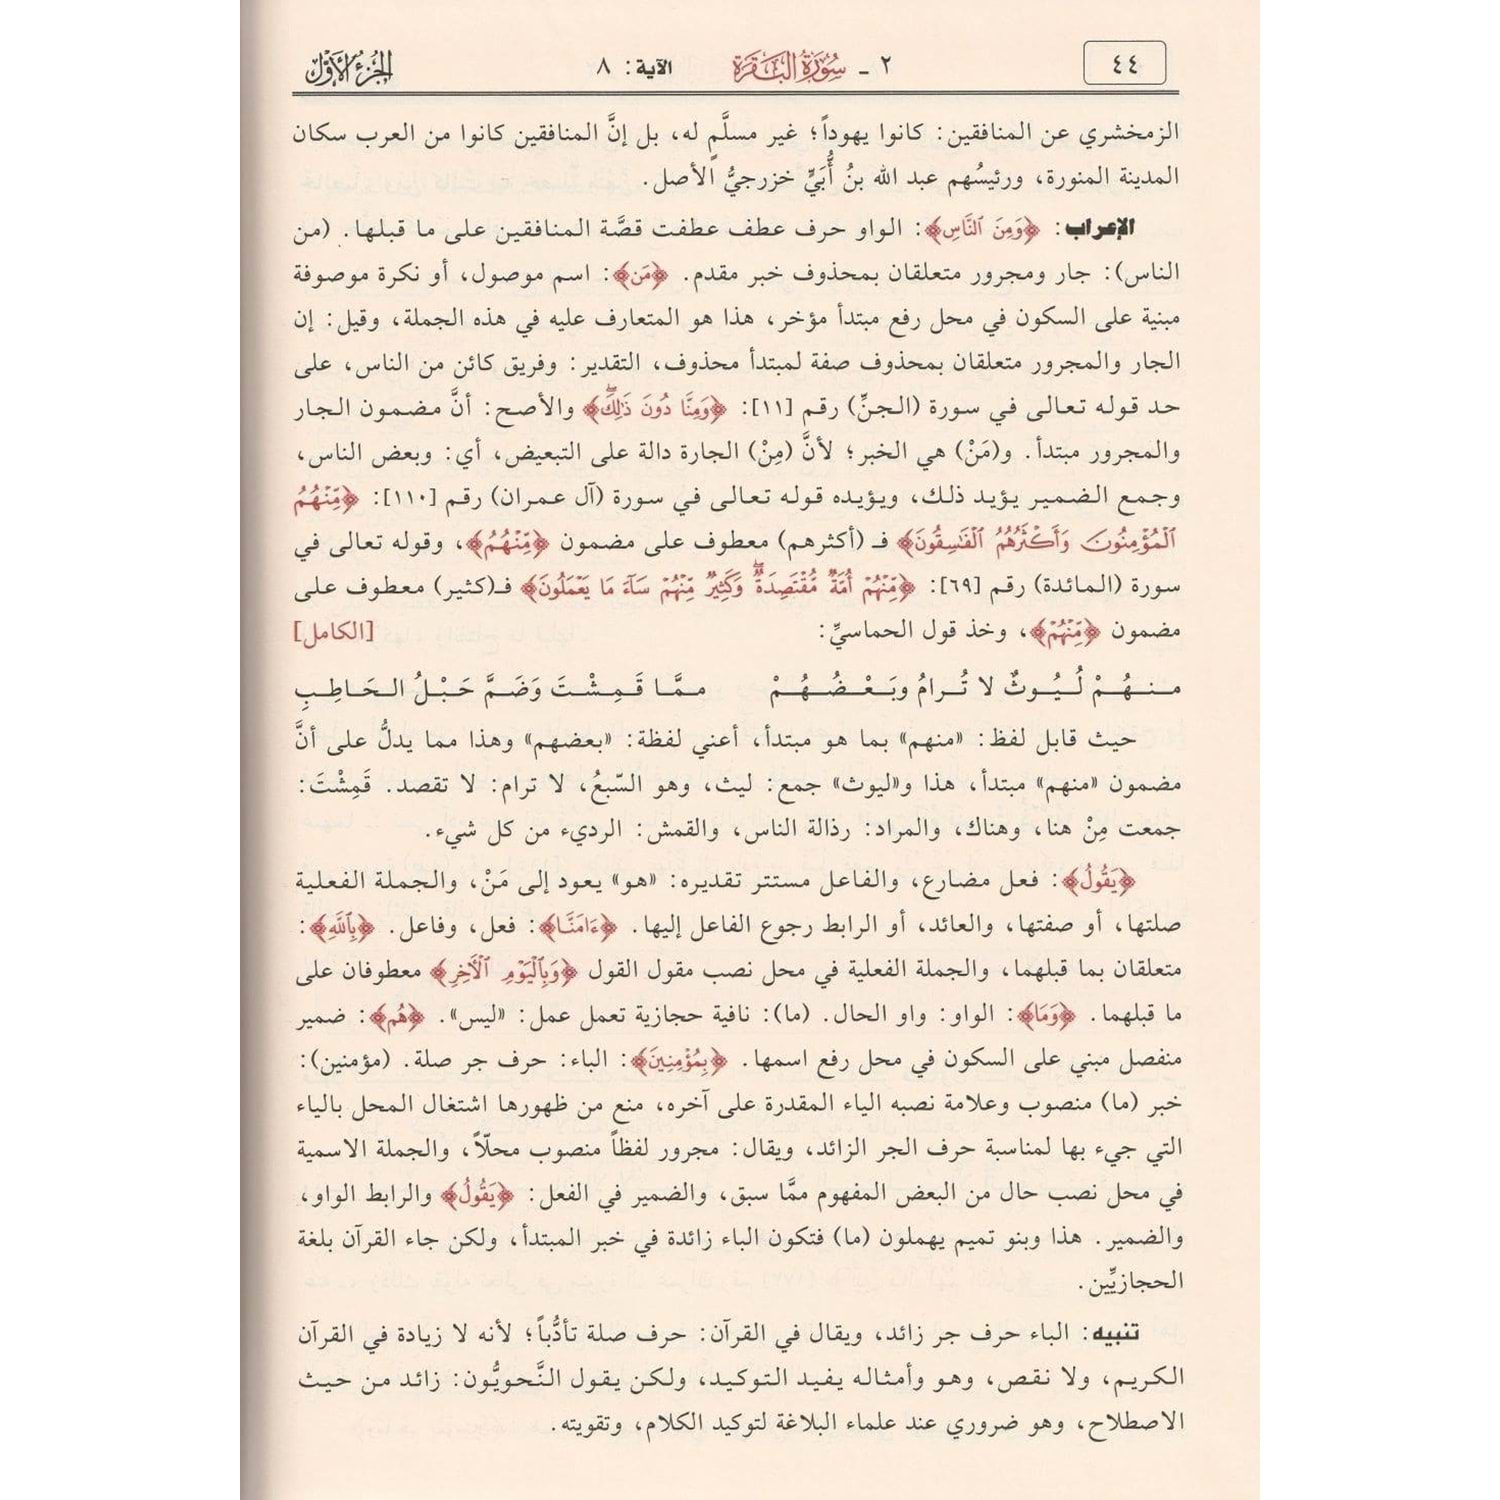 ٤٤
٢ ـ سُورَةُ البَقَرَة
الآية: ٨
الجُزءُ الأَوَّل
الزمخشري عن المنافقين: كانوا يهوداً؛ غير مسلَّمٍ له، بل إنَّ المنافقين كانوا من العرب سكان
المدينة المنورة، ورئيسُهم عبد الله بنُ أُبَيٍّ خزرجيُّ الأصل.
الإعراب: ﴿وَمِنَ ٱلنَّاسِ﴾: الواو حرف عطف عطفت قصَّة المنافقين على ما قبلها. (من
الناس): جار ومجرور متعلقان بمحذوف خبر مقدم. ﴿مَن﴾: اسم موصول، أو نكرة موصوفة
مبنية على السكون في محل رفع مبتدأ مؤخر، هذا هو المتعارف عليه في هذه الجملة، وقيل: إن
الجار والمجرور متعلقان بمحذوف صفة لمبتدأ محذوف، التقدير: وفريق كائن من الناس، على
حد قوله تعالى في سورة (الجنِّ) رقم [١١]: ﴿وَمِنَّا دُونَ ذَٰلِكَۖ﴾ والأصح: أنَّ مضمون الجار
والمجرور مبتدأ. و(مَنْ) هي الخبر؛ لأنَّ (مِنْ) الجارة دالة على التبعيض، أي: وبعض الناس،
وجمع الضمير يؤيد ذلك، ويؤيده قوله تعالى في سورة (آل عمران) رقم [١١٠]: ﴿مِّنْهُمُ
ٱلْمُؤْمِنُونَ وَأَكْثَرُهُمُ ٱلْفَٰسِقُونَ﴾ فـ (أكثرهم) معطوف على مضمون ﴿مِّنْهُمُ﴾، وقوله تعالى في
سورة (المائدة) رقم [٦٩]: ﴿مِّنْهُمْ أُمَّةٌ مُّقْتَصِدَةٌۖ وَكَثِيرٌ مِّنْهُمْ سَآءَ مَا يَعْمَلُونَ﴾ فـ(كثير) معطوف على
مضمون ﴿مِّنْهُمْ﴾، وخذ قول الحماسيِّ: [الكامل]
منهُمْ لُيُوثٌ لا تُرامُ وبَعْضُهُمْ ممَّا قَمِشْتَ وَضَمَّ حَبْلُ الحَاطِبِ
حيث قابل لفظ: «منهم» بما هو مبتدأ، أعني لفظة: «بعضهم» وهذا مما يدلُّ على أنَّ
مضمون «منهم» مبتدأ، هذا و«ليوث» جمع: ليث، وهو السّبعُ، لا ترام: لا تقصد. قَمِشْتَ:
جمعت مِنْ هنا، وهناك، والمراد: رذالة الناس، والقمش: الرديء من كل شيء.
﴿يَقُولُ﴾: فعل مضارع، والفاعل مستتر تقديره: «هو» يعود إلى مَنْ، والجملة الفعلية
صلتها، أو صفتها، والعائد، أو الرابط رجوع الفاعل إليها. ﴿ءَامَنَّا﴾: فعل، وفاعل. ﴿بِٱللَّهِ﴾:
متعلقان بما قبلهما، والجملة الفعلية في محل نصب مقول القول ﴿وَبِٱلْيَوْمِ ٱلْأَخِرِ﴾ معطوفان على
ما قبلهما. ﴿وَمَا﴾: الواو: واو الحال. (ما): نافية حجازية تعمل عمل: «ليس». ﴿هُم﴾: ضمير
منفصل مبني على السكون في محل رفع اسمها. ﴿بِمُؤْمِنِينَ﴾: الباء: حرف جر صلة. (مؤمنين):
خبر (ما) منصوب وعلامة نصبه الياء المقدرة على آخره، منع من ظهورها اشتغال المحل بالياء
التي جيء بها لمناسبة حرف الجر الزائد، ويقال: مجرور لفظاً منصوب محلّاً، والجملة الاسمية
في محل نصب حال من البعض المفهوم ممَّا سبق، والضمير في الفعل: ﴿يَقُولُ﴾ والرابط الواو،
والضمير. هذا وبنو تميم يهملون (ما) فتكون الباء زائدة في خبر المبتدأ، ولكن جاء القرآن بلغة
الحجازيِّين.
تنبيه: الباء حرف جر زائد، ويقال في القرآن: حرف صلة تأدُّباً؛ لأنه لا زيادة في القرآن
الكريم، ولا نقص، وهو وأمثاله يفيد التوكيد، ولكن يقول النَّحويُّون: زائد من حيث
الاصطلاح، وهو ضروري عند علماء البلاغة لتوكيد الكلام، وتقويته.